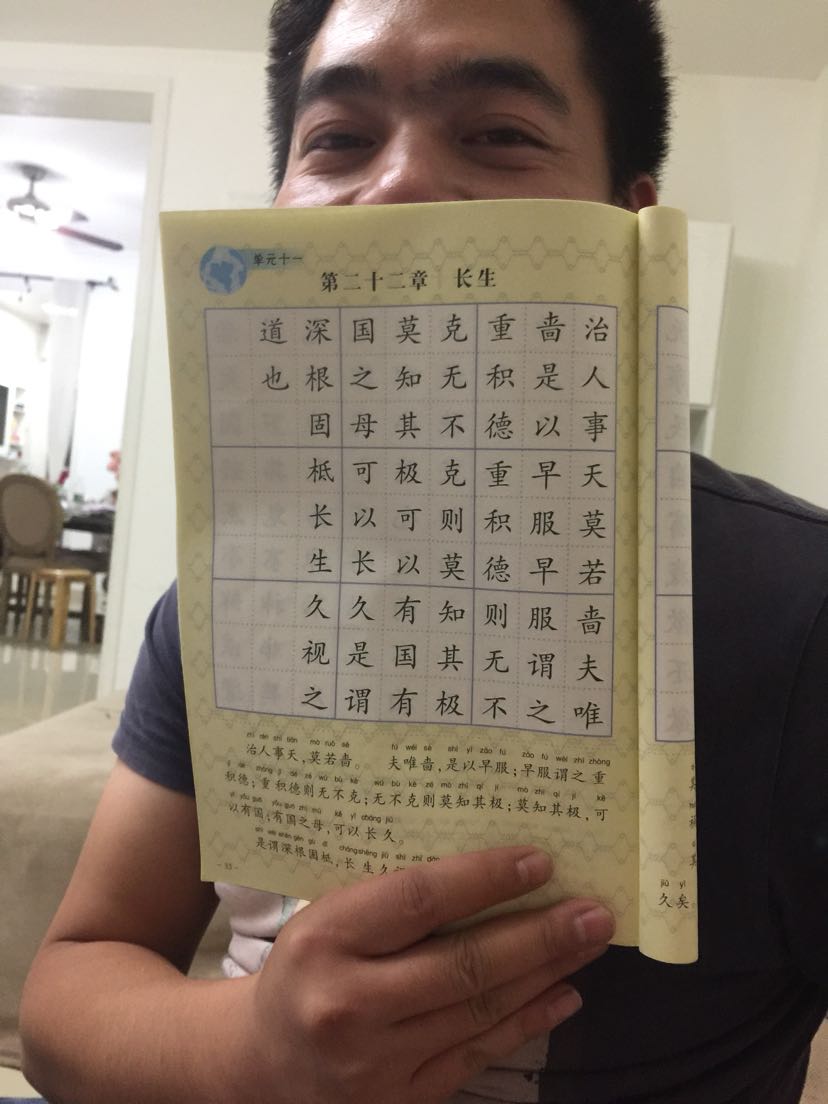 单元十一
第二十二章 长生
治人事天莫若啬夫唯
啬是以早服早服谓之
重积德重积德则无不
克无不克则莫知其极
莫知其极可以有国有
国之母可以长久是谓
深根固柢长生久视之
道也
zhì rén shì tiān mò ruò sè fú wéi sè shì yǐ zǎo fú zǎo fú wèi zhī zhòng
治人事天,莫若啬。 夫唯啬,是以早服;早服谓之重
jī dé zhòng jī dé zé wú bù kè wú bù kè zé mò zhī qí jí mò zhī qí jí kě
积德;重积德则无不克;无不克则莫知其极;莫知其极,可
yǐ yǒu guó yǒu guó zhī mǔ kě yǐ cháng jiǔ
以有国;有国之母,可以长久。
shì wèi shēn gēn gù dǐ chángshēng jiǔ shì zhī
是谓深根固柢,长生久
- 33 -
jiǔ yǐ
久矣。